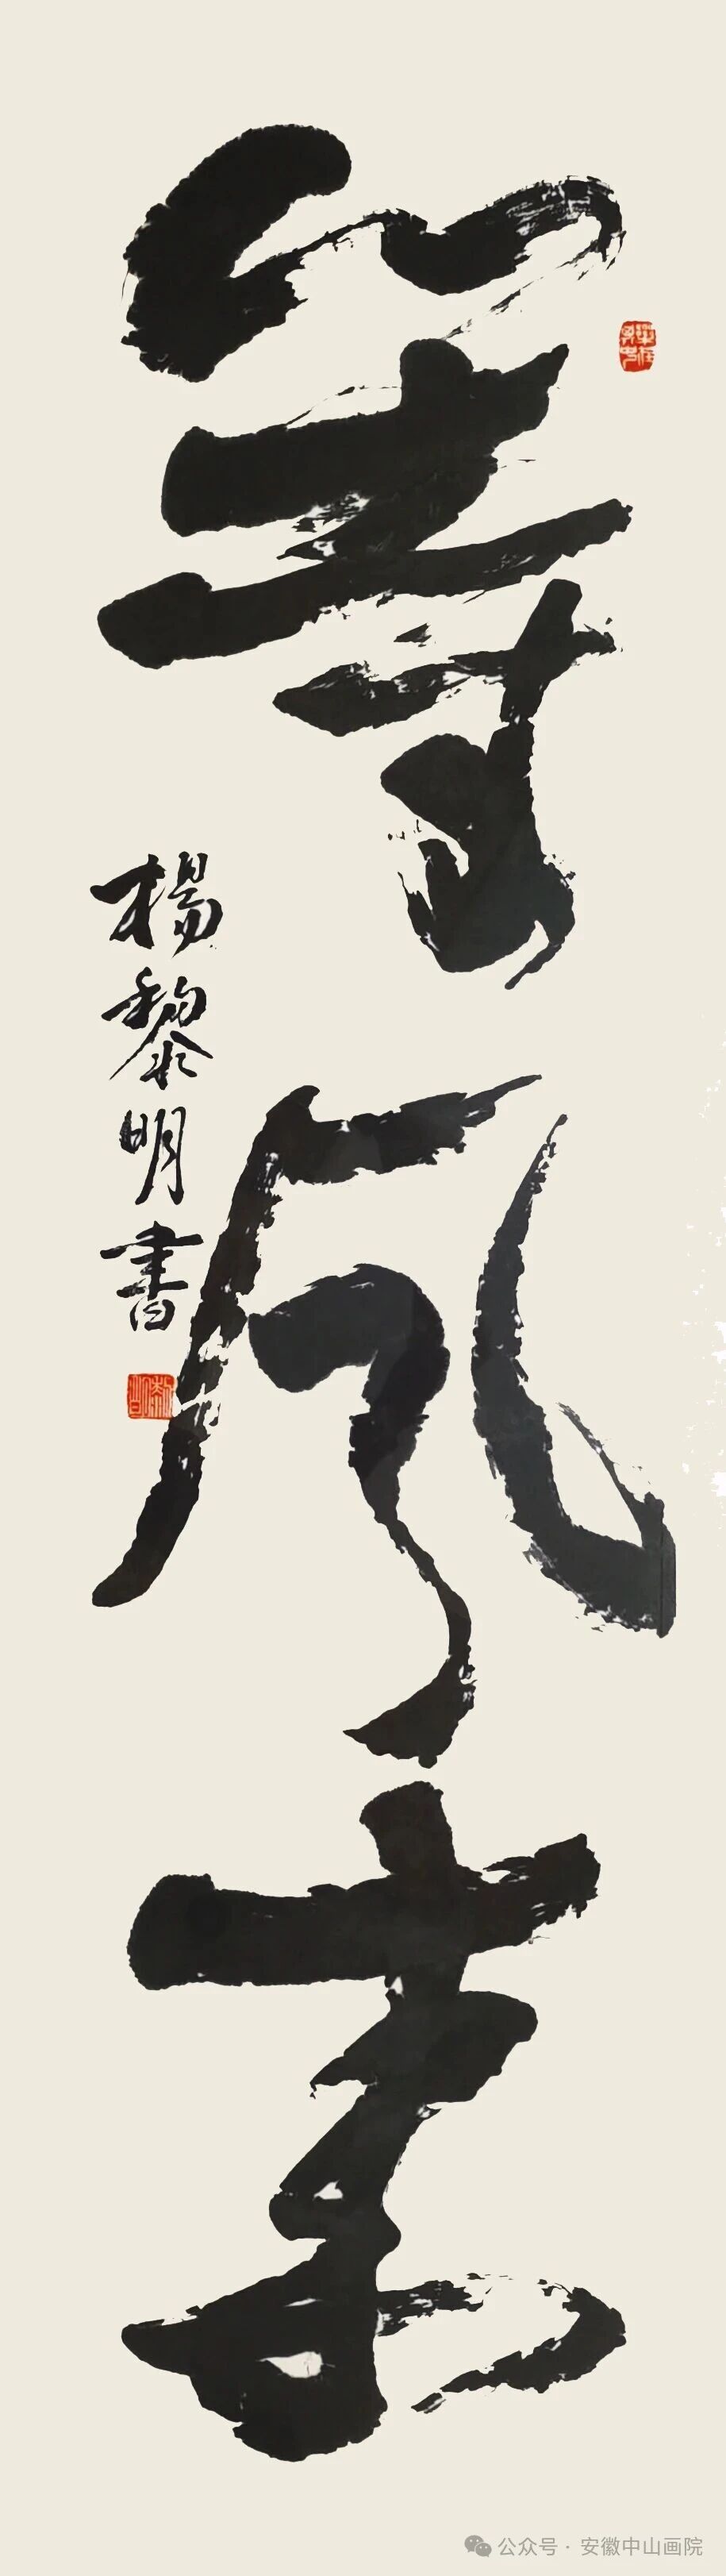 等风来
楊黎明書
公众号 · 安徽中山画院